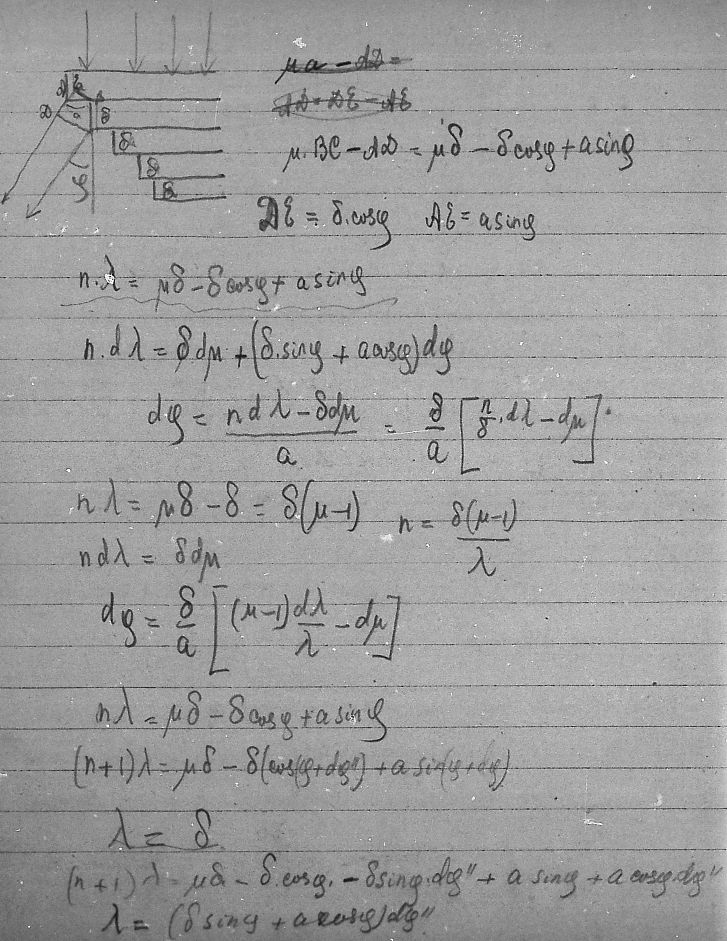 μa − dD =
AD = DE − AE
μ.BC − AD = μδ − δcosφ + a sinφ
DE = δ.cosφ AE = a sinφ
n.λ = μδ − δcosφ + a sinφ
n.dλ = δdμ + (δ.sinφ + a cosφ)dφ
dφ = (ndλ − δdμ)/a = δ/a [n/δ.dλ − dμ].
nλ = μδ − δ = δ(μ−1) n = δ(μ−1)/λ
ndλ = δdμ
dφ = δ/a [(μ−1)dλ/λ − dμ]
nλ = μδ − δcosφ + a sinφ
(n+1)λ = μδ − δ(cos(φ+dφ'') + a sin(φ+dφ)
λ = δ
(n+1)λ = μδ − δ.cosφ. − δsinφ.dφ'' + a sinφ + a cosφ.dφ''
λ = (δ sinφ + a cosφ)dφ''